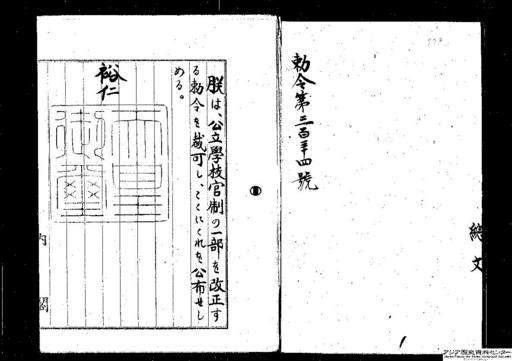 勅令第二百二十四號
総文
朕は、公立學校官制の一部を改正す
る勅令を裁可し、ここにこれを公布せし
める。
裕仁
天皇
御璽
内閣
アジア歴史資料センター